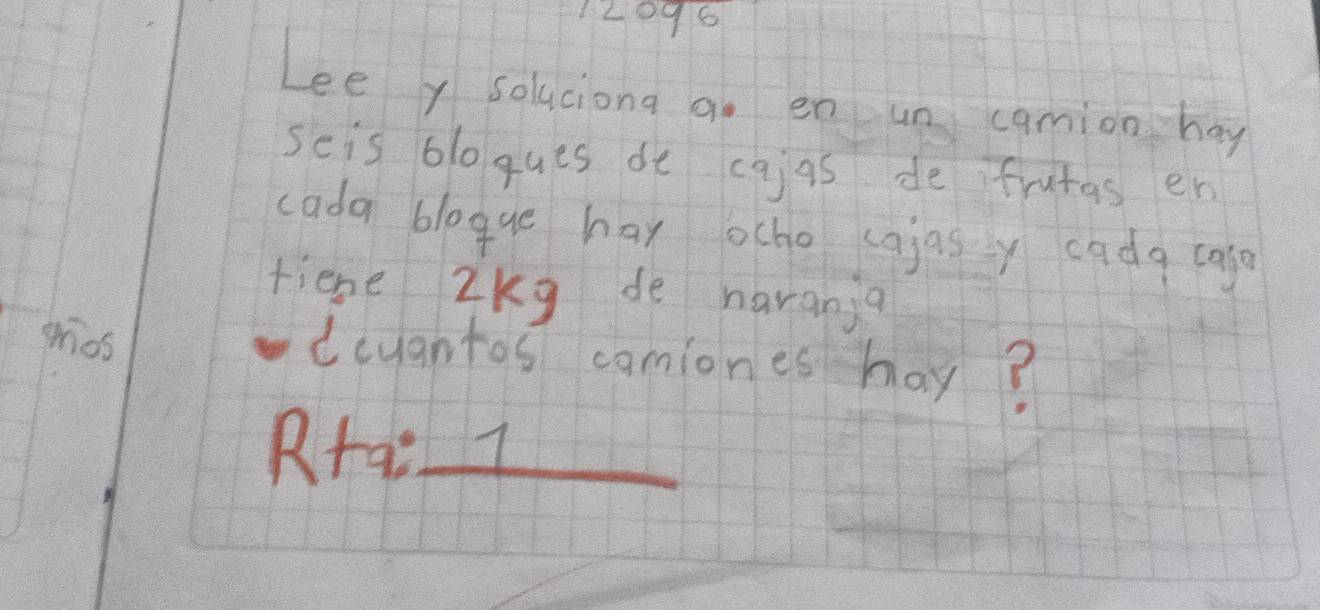 12096
Lee y soluciona a. en un camion hay
seis bloques de cajas de frutas en
cada bloque hay ocho cajas y cada caja
tiene 2kg de naranja
¿cuantos camiones hay?
Rta: 1